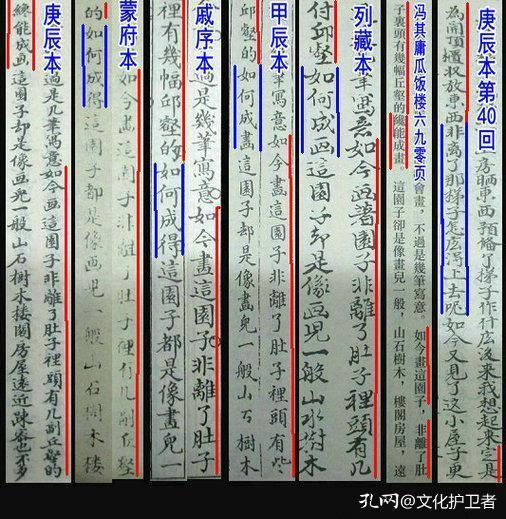 庚辰本第40回
房晒東西預備了梯子作什庅後來我想起來定是
為開頂櫃収放東西非離了那梯子怎庅得上去呢如今又見了這小屋子更
冯其庸瓜饭楼六九零页
會畫，不過是幾筆寫意。如今畫這園子，非離了肚
子裏頭有幾幅丘壑的纔能成畫。這園子卻是像畫兒一般，山石樹木，樓閣房屋，遠
列藏本
筆寫意如今画着園子非離了肚子裡頭有几
付邱壑如何成画這園子却是像画児一般山水樹木
甲辰本
筆寫意如今畫這園子非離了肚子裡頭有些
邱壑的如何成畫這園子却是像畫兒一般山石樹木
戚序本
過是幾筆寫意如今畫這園子非離了肚子
裡有幾幅邱壑的如何成得這園子都是像畫兒一
蒙府本
如今畫這園子非離了肚子俚有几副丘壑
的如何成得這園子都是像画児一般山石樹木楼
庚辰本
過是几筆寫意如今画這園子非離了肚子裡頭有几副丘壑的
總能成画這園子却是像画兒一般山石樹木楼閣房屋遠近踈宻也不多
孔网@文化护卫者